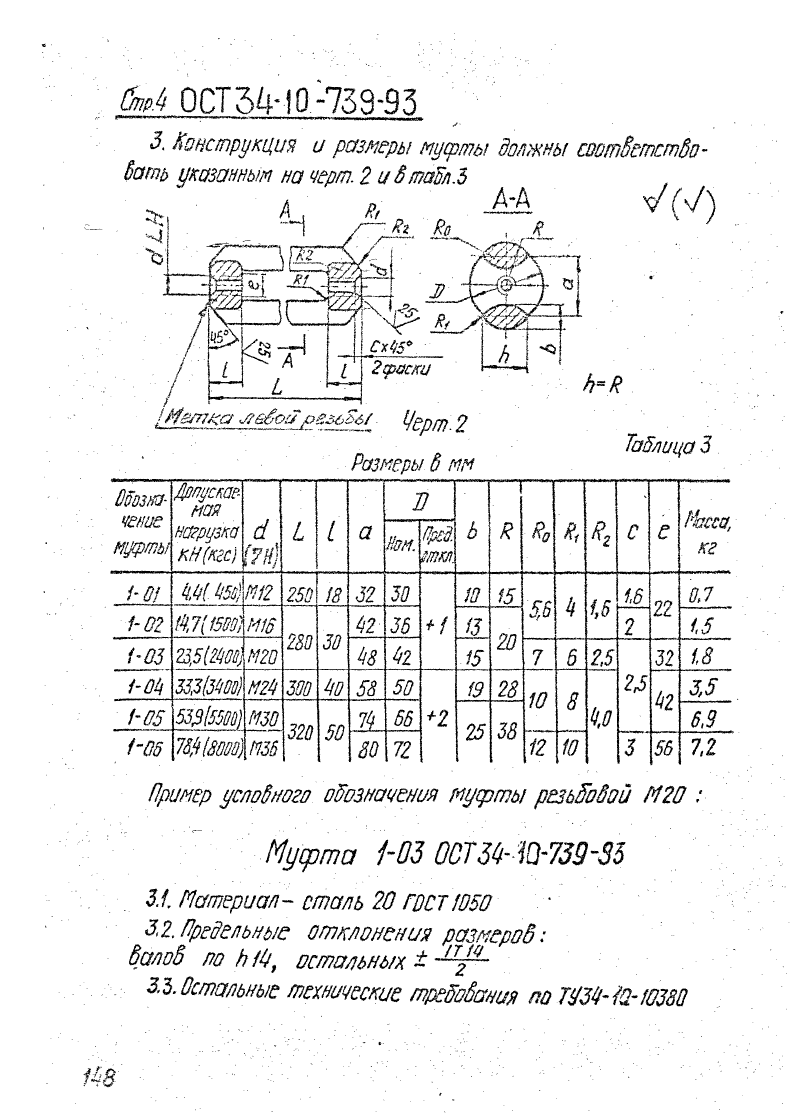 Стр.4 ОСТ 34-10-739-93
3. Конструкция и размеры муфты должны соответство-
вать указанным на черт. 2 и в табл.3
А-А
√(√)
А R₁ R₂ R₀ R
d LH R2 d e R1 D a
25 R₁
45° 25 А С×45° h b
l l 2 фаски
L h=R
Метка левой резьбы Черт.2
Таблица 3
Размеры в мм
Обозна-чение муфты | Допускае-мая нагрузка кН (кгс) | d (7Н) | L | l | a | D Ном. | D Пред. откл. | b | R | R₀ | R₁ | R₂ | c | e | Масса, кг
1-01 | 4,4( 450) | М12 | 250 | 18 | 32 | 30 | +1 | 10 | 15 | 5,6 | 4 | 1,6 | 1,6 | 22 | 0,7
1-02 | 14,7(1500) | М16 | 280 | 30 | 42 | 36 | 13 | 20 | 2 | 1,5
1-03 | 23,5(2400) | М20 | 48 | 42 | 15 | 7 | 6 | 2,5 | 2,5 | 32 | 1,8
1-04 | 33,3(3400) | М24 | 300 | 40 | 58 | 50 | +2 | 19 | 28 | 10 | 8 | 4,0 | 42 | 3,5
1-05 | 53,9(5500) | М30 | 320 | 50 | 74 | 66 | 25 | 38 | 6,9
1-06 | 78,4(8000) | М36 | 80 | 72 | 12 | 10 | 3 | 56 | 7,2
Пример условного обозначения муфты резьбовой М20 :
Муфта 1-03 ОСТ 34-10-739-93
3.1. Материал – сталь 20 ГОСТ 1050
3.2. Предельные отклонения размеров :
валов по h14, остальных ± IT14/2
3.3. Остальные технические требования по ТУ34-10-10380
148